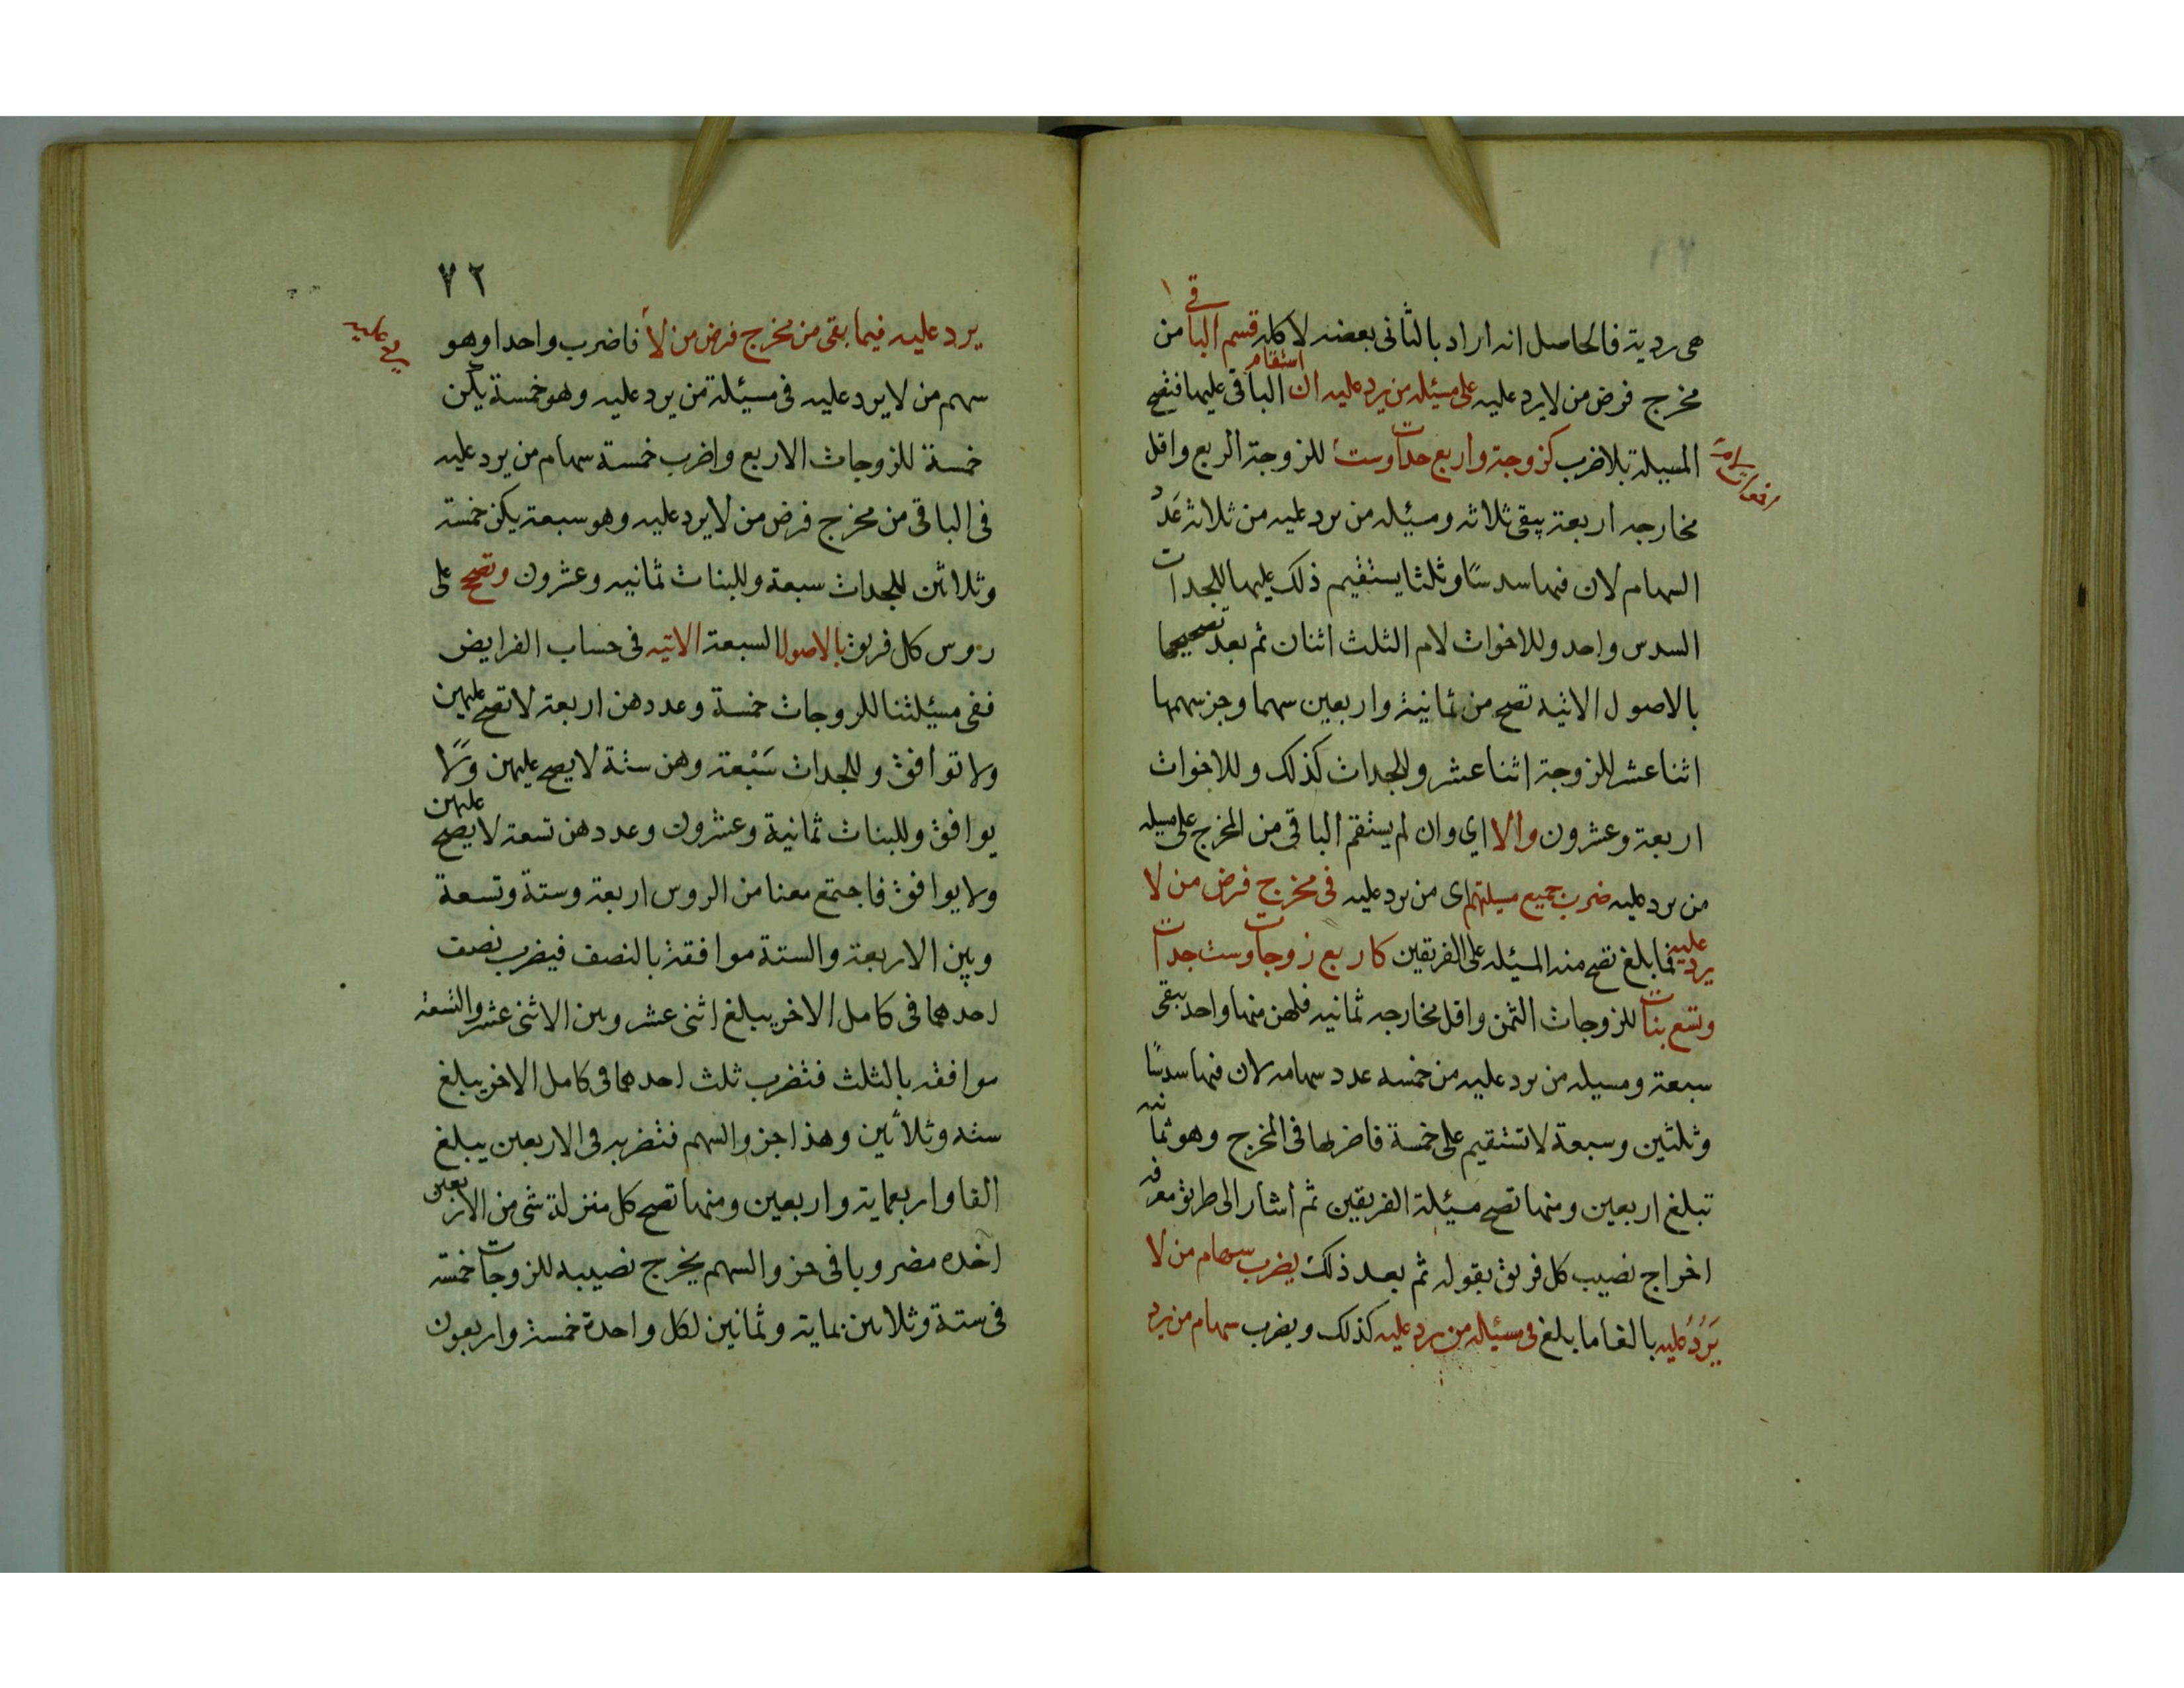 هى ردية فالحاصل انه اراد بالثانى بعضه لا كله قسم الباقى من
مخرج فرض من لا يرد عليه على مسئله من يرد عليه ان استقام الباقى عليها فتصح
المسيلة بلا ضرب كزوجة واربع جدات وست للزوجة الربع واقل
مخارجه اربعة يبقى ثلاثه ومسيله من يرد عليه من ثلاثه عدد
السهام لان فيها سدسا وثلثا يستقيم ذلك عليها للجدات
السدس واحد وللاخوات لام الثلث اثنان ثم بعد تصحيحها
بالاصول الاتيه تصح من ثمانية واربعين سهما وجز سهمها
اثنا عشر للزوجة اثنا عشر وللجدات كذلك وللاخوات
اربعة وعشرون والا اي وان لم يستقم الباقى من المخرج على مسيله
من يرد عليه ضرب جميع مسيلتهم اى من يرد عليه فى مخرج فرض من لا
يرد عليه فما بلغ تصح منه المسيله على الفريقين كاربع زوجات وست جدات
وتسع بنات للزوجات الثمن واقل مخارجه ثمانيه فلهن منها واحد يبقى
سبعة ومسيله من يرد عليه من خمسه عدد سهامه لان فيها سدسا
وثلثين وسبعة لا تستقيم على خمسة فاضربها فى المخرج وهو ثمانيه
تبلغ اربعين ومنها تصح مسيلة الفريقين ثم اشار الى طريق معرفه
اخراج نصيب كل فريق بقوله ثم بعد ذلك يضرب سهام من لا
يرد عليه بالغا ما بلغ فى مسئله من يرد عليه كذلك ويضرب سهام من يرد
٧٢
يرد عليه فيما بقى من مخرج فرض من لا فاضرب واحدا وهو
سهم من لا يرد عليه فى مسئيلة من يرد عليه وهو خمسة يكن
خمسة للزوجات الاربع واضرب خمسة سهام من يرد عليه
فى الباقى من مخرج فرض من لا يرد عليه وهو سبعة يكن خمسة
وثلاثين للجدات سبعة وللبنات ثمانيه وعشرون وتصح على
روس كل فريق بالاصول السبعة الاتيه فى حساب الفرايض
ففى مسئيلتنا للزوجات خمسة وعددهن اربعة لا تصح عليهن
ولا توافق وللجدات سبعة وهن ستة لا يصح عليهن ولا
يوافق وللبنات ثمانية وعشرون وعددهن تسعة لا يصح عليهن
ولا يوافق فاجتمع معنا من الروس اربعة وستة وتسعة
وبين الاربعة والستة موافقة بالنصف فيضرب نصف
احدهما فى كامل الاخر يبلغ اثنى عشر وبين الاثنى عشر والتسعه
موافقه بالثلث فتضرب ثلث احدهما فى كامل الاخر يبلغ
سته وثلاثين وهذا جزو السهم فتضربه فى الاربعين يبلغ
الفا واربعماية واربعين ومنها تصح كل من له شى من الاربعين
اخده مضروبا فى جزو السهم يخرج نصيبه للزوجات خمسة
فى ستة وثلاثين بماية وثمانين لكل واحدة خمسة واربعون